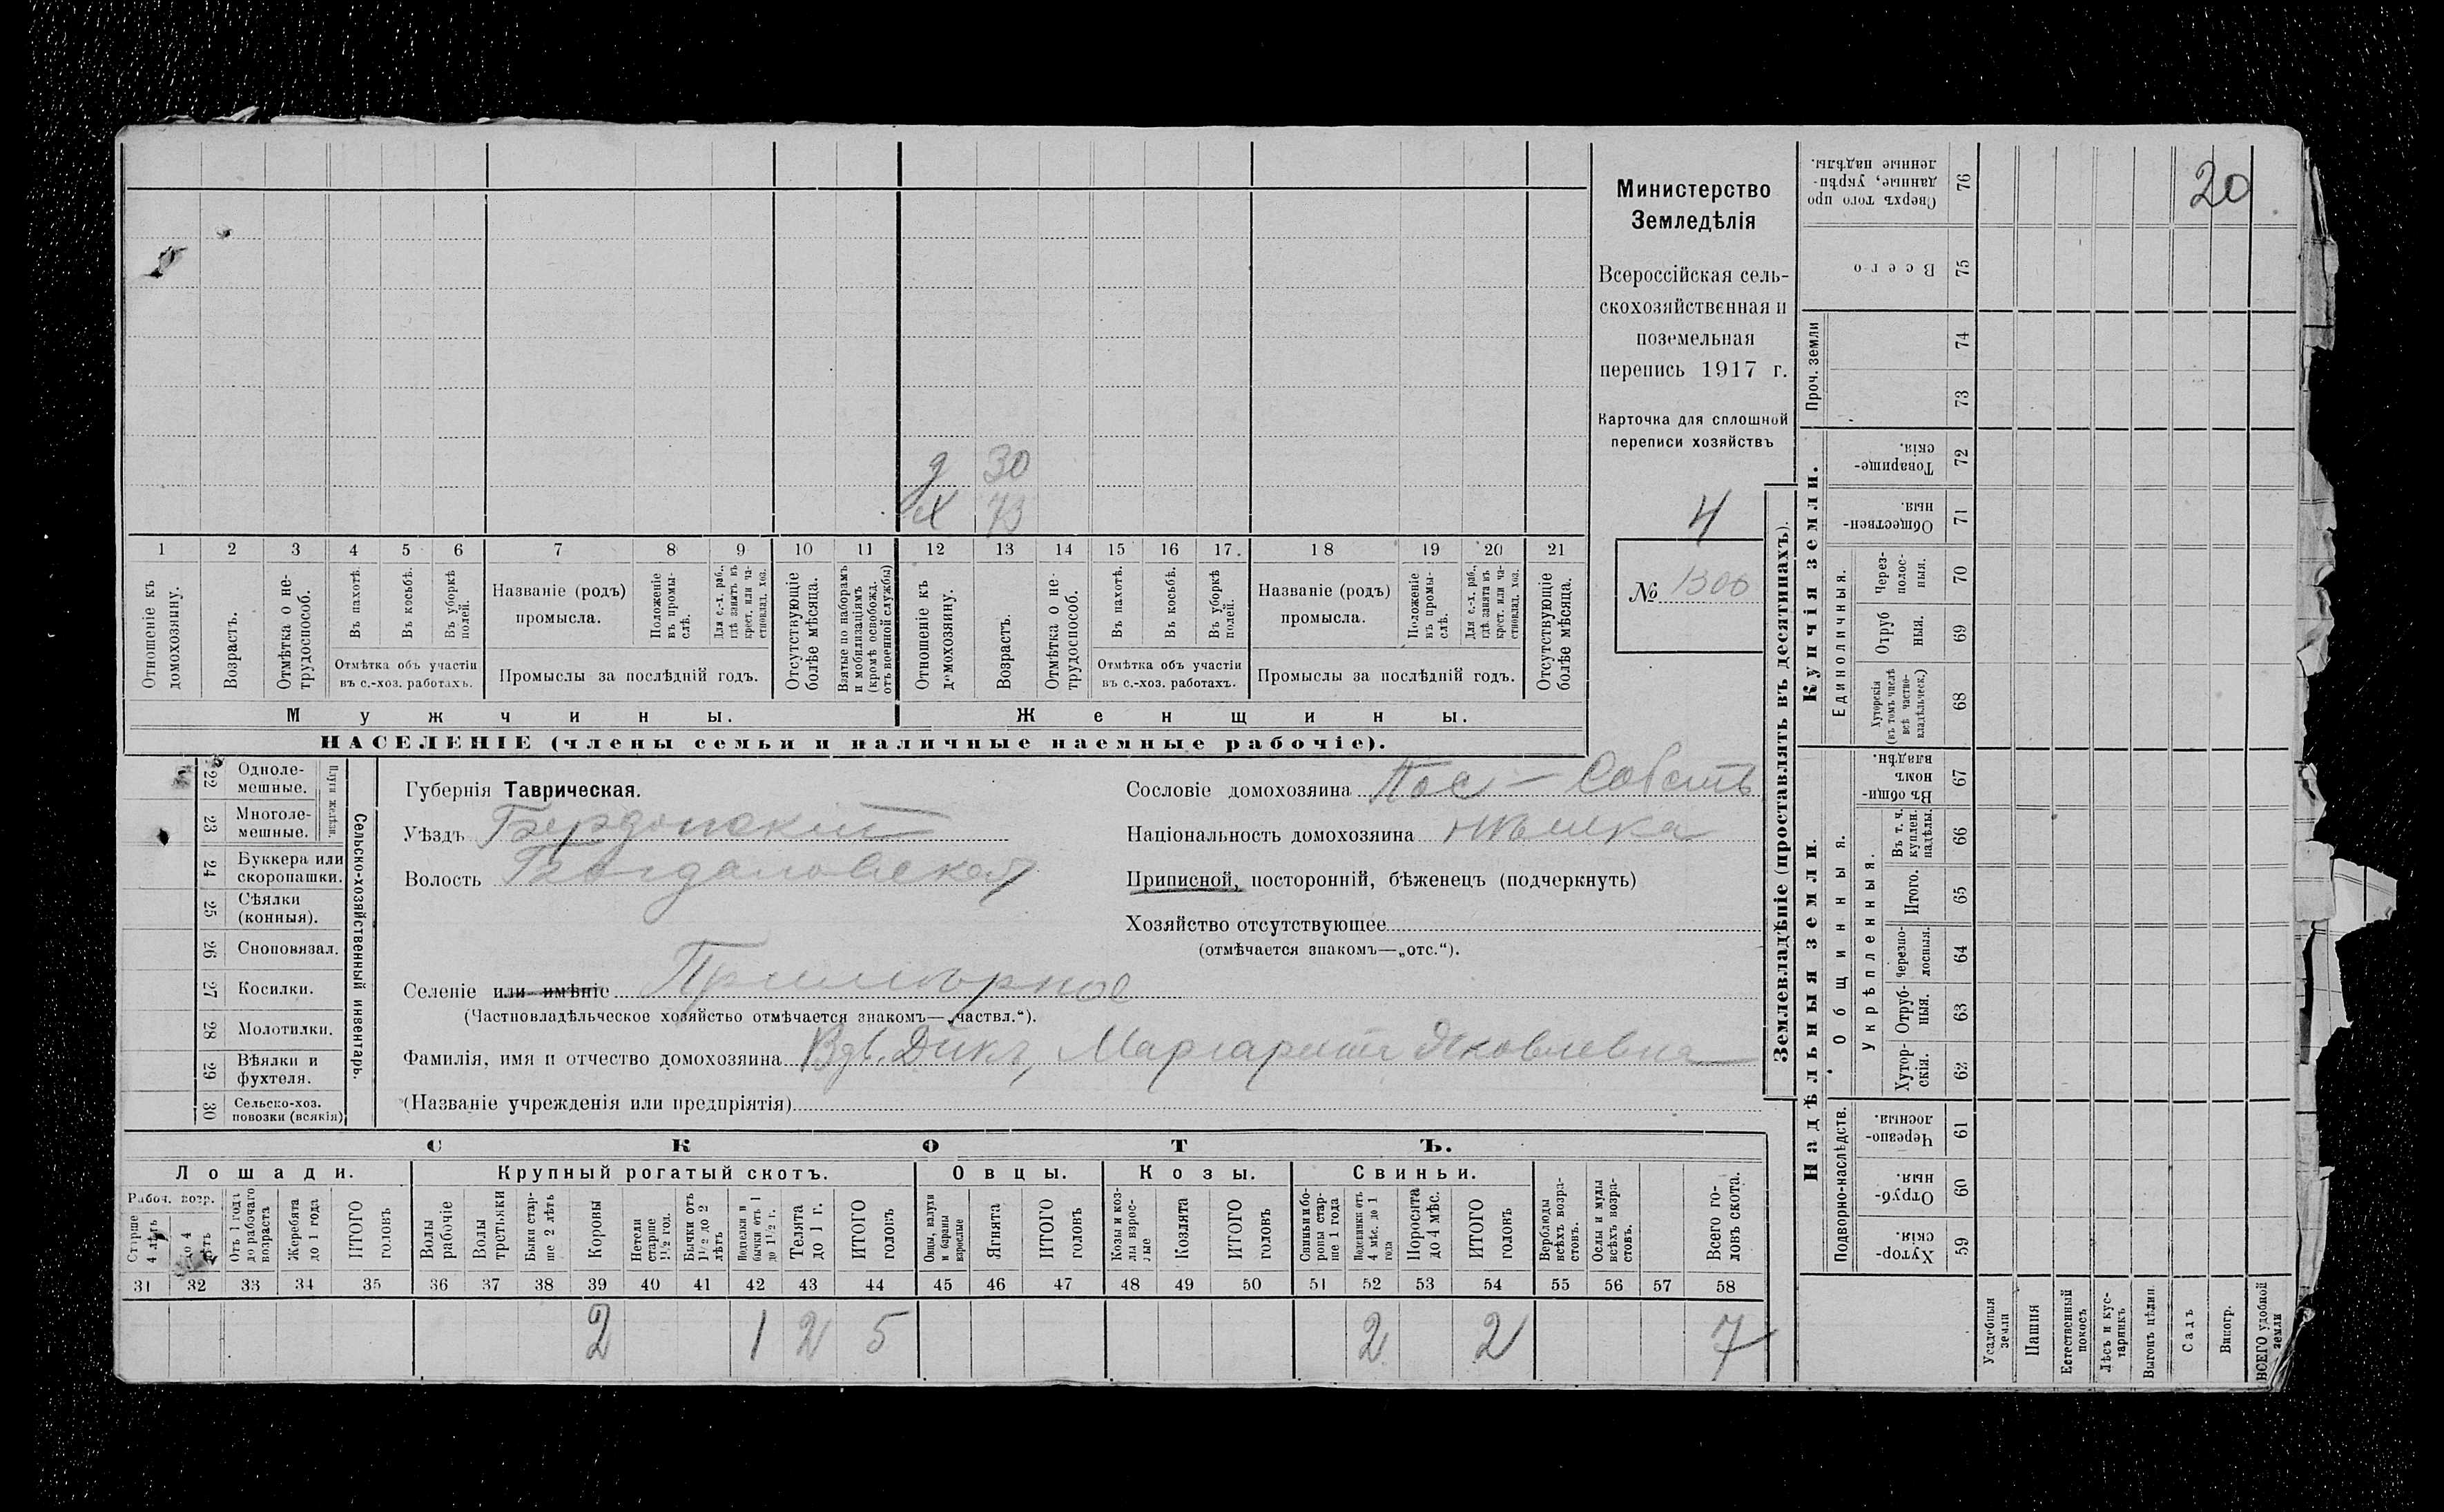 д 30
х 73
1 2 3 4 5 6 7 8 9 10 11 12 13 14 15 16 17. 18 19 20 21
Отношеніе къ домохозяину.
Возрастъ.
Отмѣтка о не-трудоспособ.
Въ пахотѣ.
Въ косьбѣ.
Въ уборкѣ полей.
Отмѣтка объ участіи
въ с.-хоз. работахъ.
Названіе (родъ)
промысла.
Положеніе въ промы-слѣ.
Для с.-х. раб., гдѣ занятъ въ крест. или ча-стновлад. хоз.
Промыслы за послѣдній годъ.
Отсутствующіе болѣе мѣсяца.
Взятые по наборамъ и мобилизаціямъ (кромѣ освобожд. отъ военной службы)
Отношеніе къ домохозяину.
Возрастъ.
Отмѣтка о не-трудоспособ.
Въ пахотѣ.
Въ косьбѣ.
Въ уборкѣ полей.
Отмѣтка объ участіи
въ с.-хоз. работахъ.
Названіе (родъ)
промысла.
Положеніе въ промы-слѣ.
Для с.-х. раб., гдѣ занята въ крест. или ча-стновлад. хоз.
Промыслы за послѣдній годъ.
Отсутствующіе болѣе мѣсяца.
Мужчины.
Женщины.
НАСЕЛЕНІЕ (члены семьи и наличные наемные рабочіе).
Министерство
Земледѣлія
Всероссійская сель-
скохозяйственная и
поземельная
перепись 1917 г.
Карточка для сплошной
переписи хозяйствъ
4
№ 1306
22 Одноле-мешные.
23 Многоле-мешные.
Плуги желѣзн.
24 Буккера или скоропашки.
25 Сѣялки (конныя).
26 Сноповязал.
27 Косилки.
28 Молотилки.
29 Вѣялки и фухтеля.
30 Сельско-хоз. повозки (всякія)
Сельско-хозяйственный инвентарь.
Губернія Таврическая.
Уѣздъ Бердянскій
Волость Богдановская
Селеніе или имѣніе Примѣрное
(Частновладѣльческое хозяйство отмѣчается знакомъ—„частвл.“).
Фамилія, имя и отчество домохозяина Вдв. Дикъ, Маргарита Яковлевна
(Названіе учрежденія или предпріятія)
Сословіе домохозяина Пос - Собств
Національность домохозяина нѣмка
Приписной, посторонній, бѣженецъ (подчеркнуть)
Хозяйство отсутствующее
(отмѣчается знакомъ—„отс.“).
СКОТЪ.
Лошади. Крупный рогатый скотъ. Овцы. Козы. Свиньи.
Рабоч. возр.
Старше 4 лѣтъ
до 4 лѣтъ
Отъ 1 года до рабочаго возраста
Жеребята до 1 года
ИТОГО головъ
Волы рабочіе
Волы третьяки
Быки стар-ше 2 лѣтъ
Коровы
Нетели старше 1½ год.
Бычки отъ 1½ до 2 лѣтъ
Подтелки и бычки отъ 1 до 1½ г.
Телята до 1 г.
ИТОГО головъ
Овцы, валухи и бараны взрослые
Ягнята
ИТОГО головъ
Козы и коз-лы взрос-лые
Козлята
ИТОГО головъ
Свиньи и бо-ровы стар-ше 1 года
Подсвинки отъ 4 мѣс. до 1 года
Поросята до 4 мѣс.
ИТОГО головъ
Верблюды всѣхъ возра-стовъ.
Ослы и мулы всѣхъ возра-стовъ.
Всего го-ловъ скота.
31 32 33 34 35 36 37 38 39 40 41 42 43 44 45 46 47 48 49 50 51 52 53 54 55 56 57 58
2 1 2 5 2 2 7
Землевладѣніе (проставлять въ десятинахъ).
Надѣльныя земли.
Купчія земли.
Проч. земли
Подворно-наслѣдств.
Общинныя.
Укрѣпленныя.
Единоличныя.
Хутор-скія. 59
Отруб-ныя. 60
Черезпо-лосныя. 61
Хутор-скія. 62
Отруб-ныя. 63
Черезпо-лосныя. 64
Итого. 65
Въ т. ч. куплен. надѣлы. 66
Въ общи-номъ владѣн. 67
Хуторскія (въ томъ числѣ всѣ частно-владѣльческ.) 68
Отруб ныя. 69
Через-полос-ныя. 70
Обществен-ныя. 71
Товарище-скія. 72
73
74
Всего 75
Сверхъ того про данные, укрѣп-ленные надѣлы. 76
Усадебныя земли
Пашня
Естественный покосъ
Лѣсъ и кус-тарникъ
Выгонъ цѣлин.
Садъ
Виногр.
ВСЕГО удобной земли
20